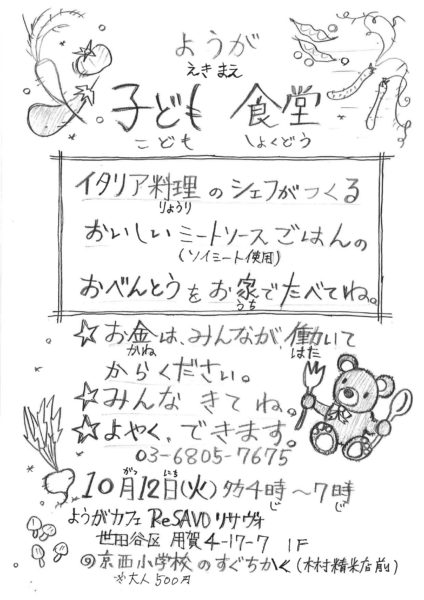 ようが
えきまえ
子ども 食堂
こども しょくどう
イタリア料理のシェフがつくる
りょうり
おいしいミートソースごはんの
(ソイミート使用)
おべんとうをお家でたべてね。
うち
☆お金は、みんなが、働いて
かね はた
からください。
☆みんな きてね。
☆よやく、できます。
03-6805-7675
10月12日(火) 夕方4時〜7時
がつ にち じ じ
ようがカフェ ReSAVO リサヴォ
世田谷区 用賀 4-17-7 1F
京西小学校のすぐちかく(木村精米店前)
※大人 500円